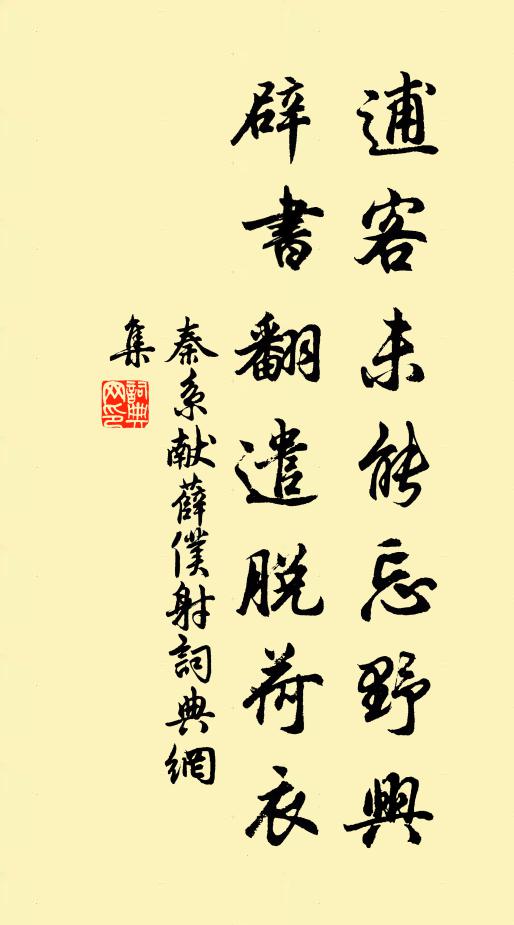 逋客未能忘野興
辟書翻遣脱荷衣
秦系献薛僕射詞典網
集
詞典網印